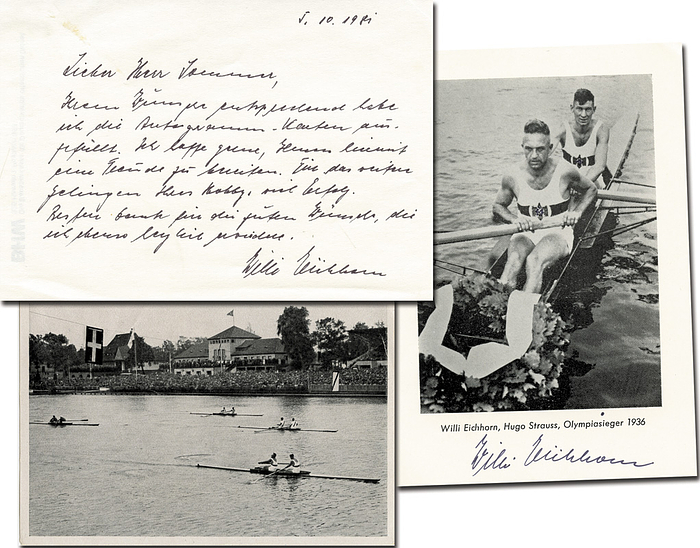 5. 10. 1981
Lieber Herr Sommer,
Ihrem Wunsche entsprechend habe
ich die Autogramm-Karten aus-
gefüllt. Ich hoffe gerne, Ihnen hiermit
eine Freude zu bereiten. Für das weitere
Gelingen Ihres Hobby's viel Erfolg.
Besten Dank für die guten Wünsche, die
ich ebenso herzlich erwidere.
Willi Eichhorn
Willi Eichhorn, Hugo Strauss, Olympiasieger 1936
Willi Eichhorn